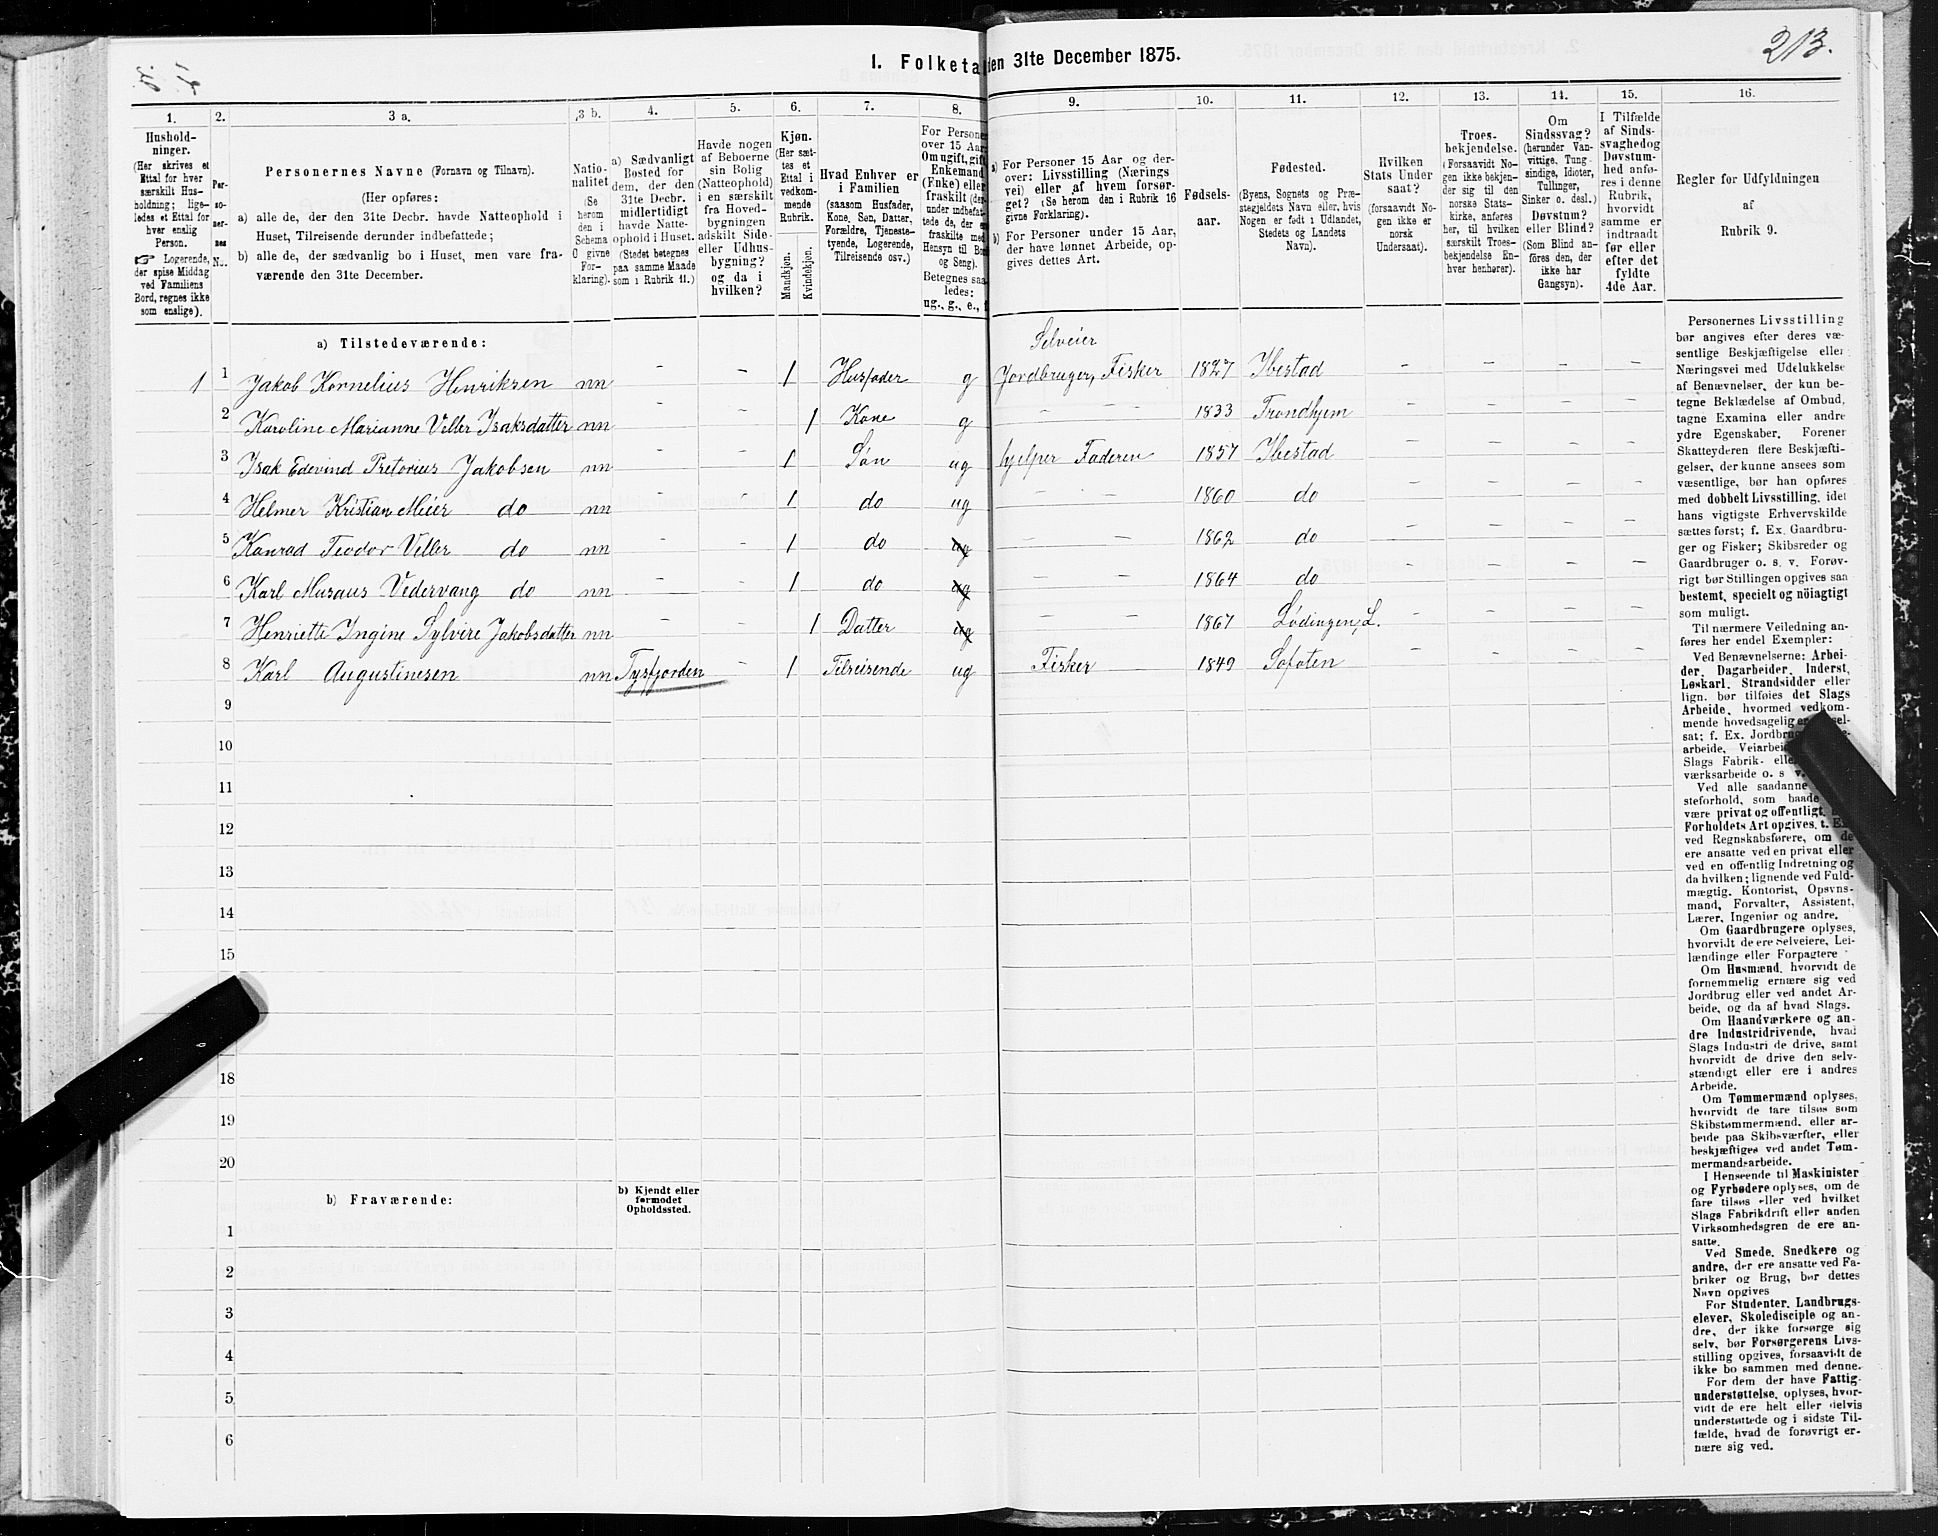 213.
I. Folketal den 31te December 1875.
1. 2. 3 a. 3 b. 4. 5. 6. 7. 8. 9. 10. 11. 12. 13. 14. 15. 16.
Hushold-
ninger.
(Her skrives et
Ettal for hver
særskilt Hus-
holdning; lige-
ledes et Ettal for
hver enslig
Person.
☞ Logerende,
der spise Middag
ved Familiens
Bord, regnes ikke
som enslige).
Per-
so-
ner-
nes
N..
Personernes Navne (Fornavn og Tilnavn).
(Her opføres:
a) alle de, der den 31te Decbr. havde Natteophold i
Huset, Tilreisende derunder indbefattede;
b) alle de, der sædvanlig bo i Huset, men vare fra-
værende den 31te December.
Natio-
nalitet
(Se
herom
den i
Schema
0 givne
For-
klaring).
a) Sædvanligt
Bosted for
dem, der den
31te Decbr.
midlertidigt
havde Natte-
ophold i Huset.
(Stedet betegnes
paa samme Maade
som i Rubrik 11.)
Havde nogen
af Beboerne
sin Bolig
(Natteophold)
i en særskilt
fra Hoved-
bygningen
adskilt Side-
eller Udhus-
bygning?
og da i
hvilken?
Kjøn.
(Her sæt-
tes et
Ettal i
vedkom-
mende
Rubrik.
Mandkjøn.
Kvindekjøn.
Hvad Enhver er
i Familien
(saasom Husfader,
Kone, Søn, Datter,
Forældre, Tjeneste-
tyende, Logerende,
Tilreisende osv.)
For Persone
over 15 Aar
Om ugift, gift
Enkemand
(Enke) eller
fraskilt (der-
under indbefat-
tede de, der e
fraskilte med
Hensyn til Bo
og Seng).
Betegnes saa
ledes:
ug., g., e.,
a) For Personer 15 Aar og der-
over: Livsstilling (Nærings
vei) eller af hvem forsør-
get? (Se herom den i Rubrik 16
givne Forklaring).
b) For Personer under 15 Aar,
der have lønnet Arbeide, op-
gives dettes Art.
Fødsels-
aar.
Fødested.
(Byens, Sognets og Præ-
stegjeldets Navn eller, hvis
Nogen er født i Udlandet,
Stedets og Landets
Navn).
Hvilken
Stats Under
saat?
(forsaavidt No-
gen ikke er
norsk
Undersaat).
Troes-
bekjendelse.
(Forsaavidt No-
gen ikke bekjen-
der sig til den
norske Stats-
kirke, anføres
her, til hvilken
særskilt Troes-
bekjendelse En-
hver henhører).
Om
Sindssvag?
(herunder Van-
vittige, Tung-
sindige, Idioter,
Tullinger,
Sinker o. desl.)
Døvstum?
eller Blind?
(Som Blind an-
føres den, der
ikke har
Gangsyn).
I Tilfælde
af Sinds-
svaghed og
Døvstum-
hed anfø-
res i denne
Rubrik,
hvorvidt
samme er
indtraadt
før eller
efter det
fyldte
4de Aar.
Regler for Udfyldningen
af
Rubrik 9.
a) Tilstedeværende:
Selveier
1 1 Jakob Kornelius Henriksen nn - - 1 Husfader g Jordbruger, Fisker 1827 Ibestad - - - -
2 Karoline Marianne Veller Isaksdatter nn - - 1 Kone g - - 1833 Trondhjem - - - -
3 Isak Edevind Pretorius Jakobsen nn - - 1 Søn ug hjelper Faderen 1857 Ibestad - - - -
4 Helmer Kristian Meier do nn - - 1 do ug - - 1860 do - - - -
5 Konrad Teodor Veller do nn - - 1 do ug - - 1862 do - - - -
6 Karl Musaus Vedervang do nn - - 1 do ug - - 1864 do - - - -
7 Henriette Ingine Sylvire Jakobsdatter nn - - 1 Datter ug - - 1867 Lødingen, L. - - - -
8 Karl Augustinesen nn Tysfjorden - 1 Tilreisende ug Fisker 1849 Lofoten - - - -
9
10
11
12
13
14
15
18
19
20
b) Fraværende:
b) Kjendt eller
formodet
Opholdssted.
1
2
3
4
5
6
Personernes Livsstilling
bør angives efter deres væ-
sentlige Beskjæftigelse eller
Næringsvei med Udelukkelse
af Benævnelser, der kun be-
tegne Beklædelse af Ombud,
tagne Examina eller andre
ydre Egenskaber. Forener
Skatteyderen flere Beskjæfti-
gelser, der kunne ansees som
væsentlige, bør han opføres
med dobbelt Livsstilling, idet
hans vigtigste Erhvervskilde
sættes først; f. Ex. Gaardbru-
ger og Fisker; Skibsreder og
Gaardbruger o. s. v. Forøv-
rigt bør Stillingen opgives saa
bestemt, specielt og nöiagtigt
som muligt.
Til nærmere Veiledning an-
føres her endel Exempler:
Ved Benævnelserne: Arbei-
der, Dagarbeider, Inderst,
Løskarl, Strandsidder eller
lign. bør tilføies det Slags
Arbeide, hvormed vedkom-
mende hovedsagelig er
sat; f. Ex. Jordbru
arbeide, Veiarbei
Slags Fabrik- elle
værksarbeide o. s v.
Ved alle saadanne
steforhold, som baade
være privat og offentligt,
Forholdets Art opgives, t. Ex
ved Regnskabsførere, om de
ere ansatte ved en privat eller
ved en offentlig Indretning og
da hvilken; lignende ved Fuld-
mægtig, Kontorist, Opsyns-
mand, Forvalter, Assistent,
Lærer, Ingeniør og andre.
Om Gaardbrugere oplyses,
hvorvidt de ere Selveiere, Lei-
lændinge eller Forpagtere
Om Husmænd, hvorvidt de
fornemmelig ernære sig ved
Jordbrug eller ved andet Ar-
beide, og da af hvad Slags.
Om Haandværkere og an-
dre Industridrivende, hvad
Slags Industri de drive, samt
hvorvidt de drive den selv-
stændigt eller ere i andres
Arbeide.
Om Tømmermænd oplyses,
hvorvidt de fare tilsøs som
Skibstømmermænd, eller ar-
beide paa Skibsværfter, eller
beskjæftiges ved andet Tøm-
mermandsarbeide.
I Henseende til Maskinister
og Fyrbødere oplyses, om de
fare tilsøs eller ved hvilket
Slags Fabrikdrift eller anden
Virksomhedsgren de ere an-
satte.
Ved Smede, Snedkere og
andre, der ere ansatte ved Fa-
briker og Brug, bør dettes
Navn opgives
For Studenter, Landbrugs-
elever, Skoledisciple og an-
dre, der ikke forsørge sig
selv, bør Forsørgerens Livs-
stilling opgives, forsaavidt de
ikke bo sammen med denne.
For dem der have Fattig-
understøttelse, oplyses, hvor-
vidt de ere helt eller delvis
understøttede og i sidste Til-
fælde, hvad de forøvrigt er-
nære sig ved.